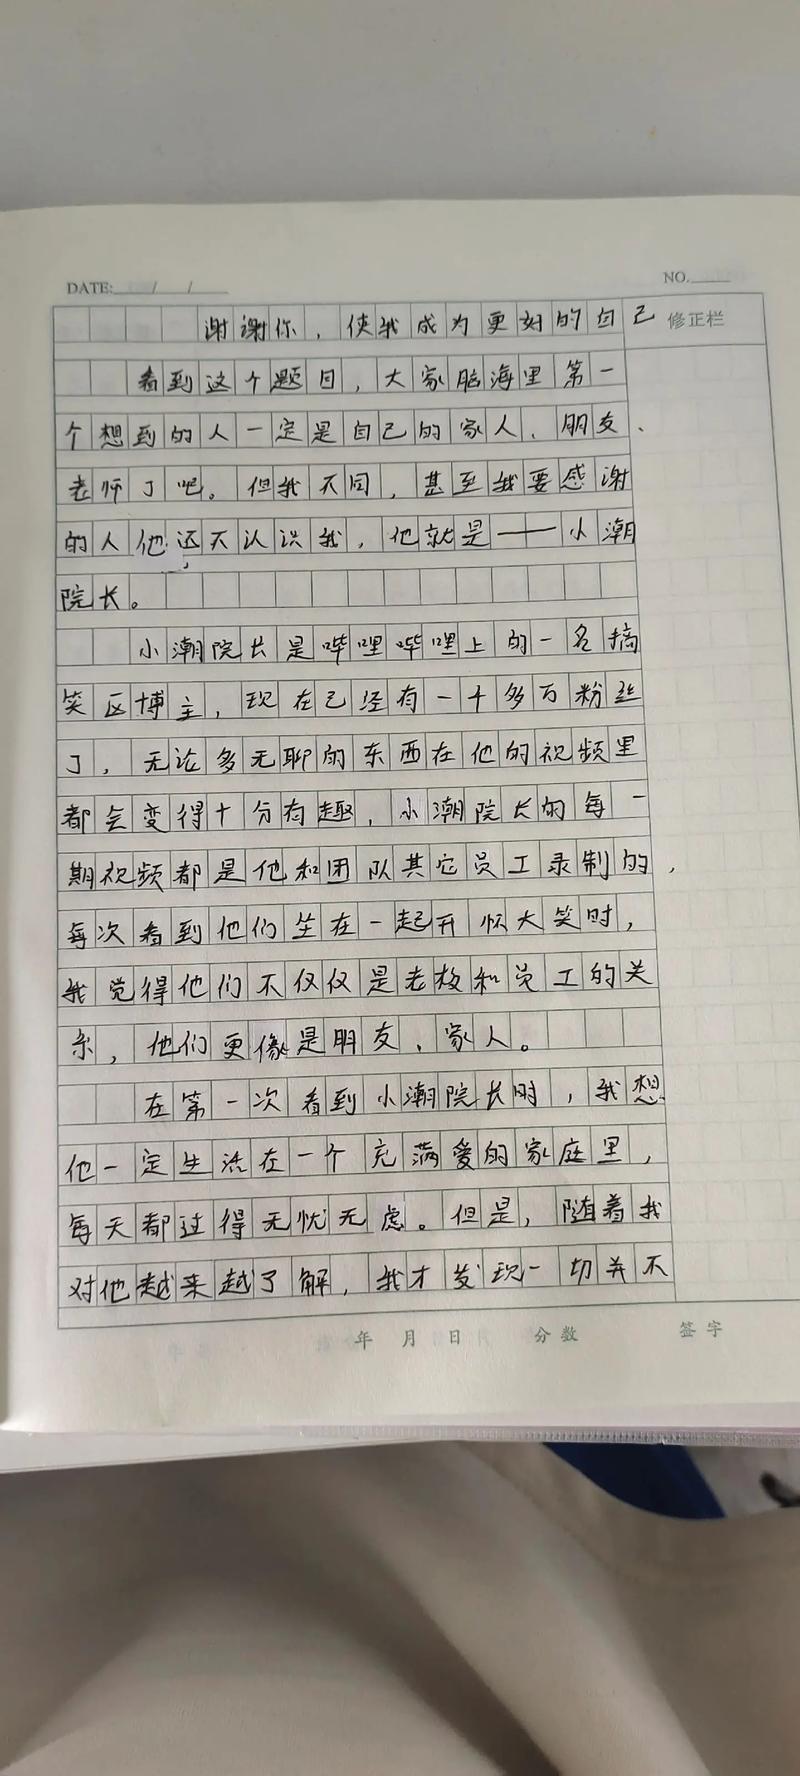 DATE: / /
NO.
谢谢你，使我成为更好的自己
修正栏
看到这个题目，大家脑海里第一
个想到的人一定是自己的家人、朋友、
老师了吧。但我不同，甚至我要感谢
的人他还不认识我，他就是——小潮
院长。
小潮院长是哔哩哔哩上的一名搞
笑区博主，现在已经有一千多万粉丝
了，无论多无聊的东西在他的视频里
都会变得十分有趣，小潮院长的每一
期视频都是他和团队其它员工录制的，
每次看到他们坐在一起开怀大笑时，
我觉得他们不仅仅是老板和员工的关
系，他们更像是朋友、家人。
在第一次看到小潮院长时，我想
他一定生活在一个充满爱的家庭里，
每天都过得无忧无虑。但是，随着我
对他越来越了解，我才发现一切并不
年 月 日 分数 签字